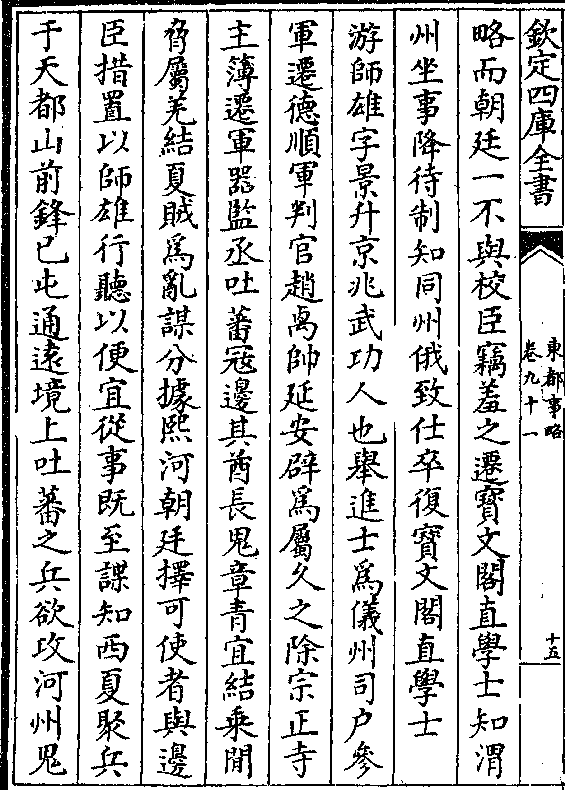 欽定四庫全書
東都事略
卷九十一
十五
略而朝廷一不與校臣竊羞之遷寳文閣直學士知渭
州坐事降待制知同州俄致仕卒復寳文閣直學士
游師雄字景升京兆武功人也舉進士為儀州司户參
軍遷德順軍判官趙卨帥延安辟為屬久之除宗正寺
主簿遷軍器監丞吐蕃冦邊其酋長鬼章青宜結乗間
脅屬羌結夏賊為亂謀分據熙河朝廷擇可使者與邊
臣措置以師雄行聽以便宜從事既至諜知西夏聚兵
于天都山前鋒已屯通逺境上吐蕃之兵欲攻河州鬼